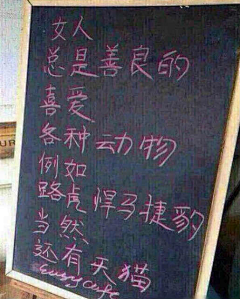 女人
总是善良的
喜爱
各种动物
例如
路虎 悍马捷豹
当然
还有天猫